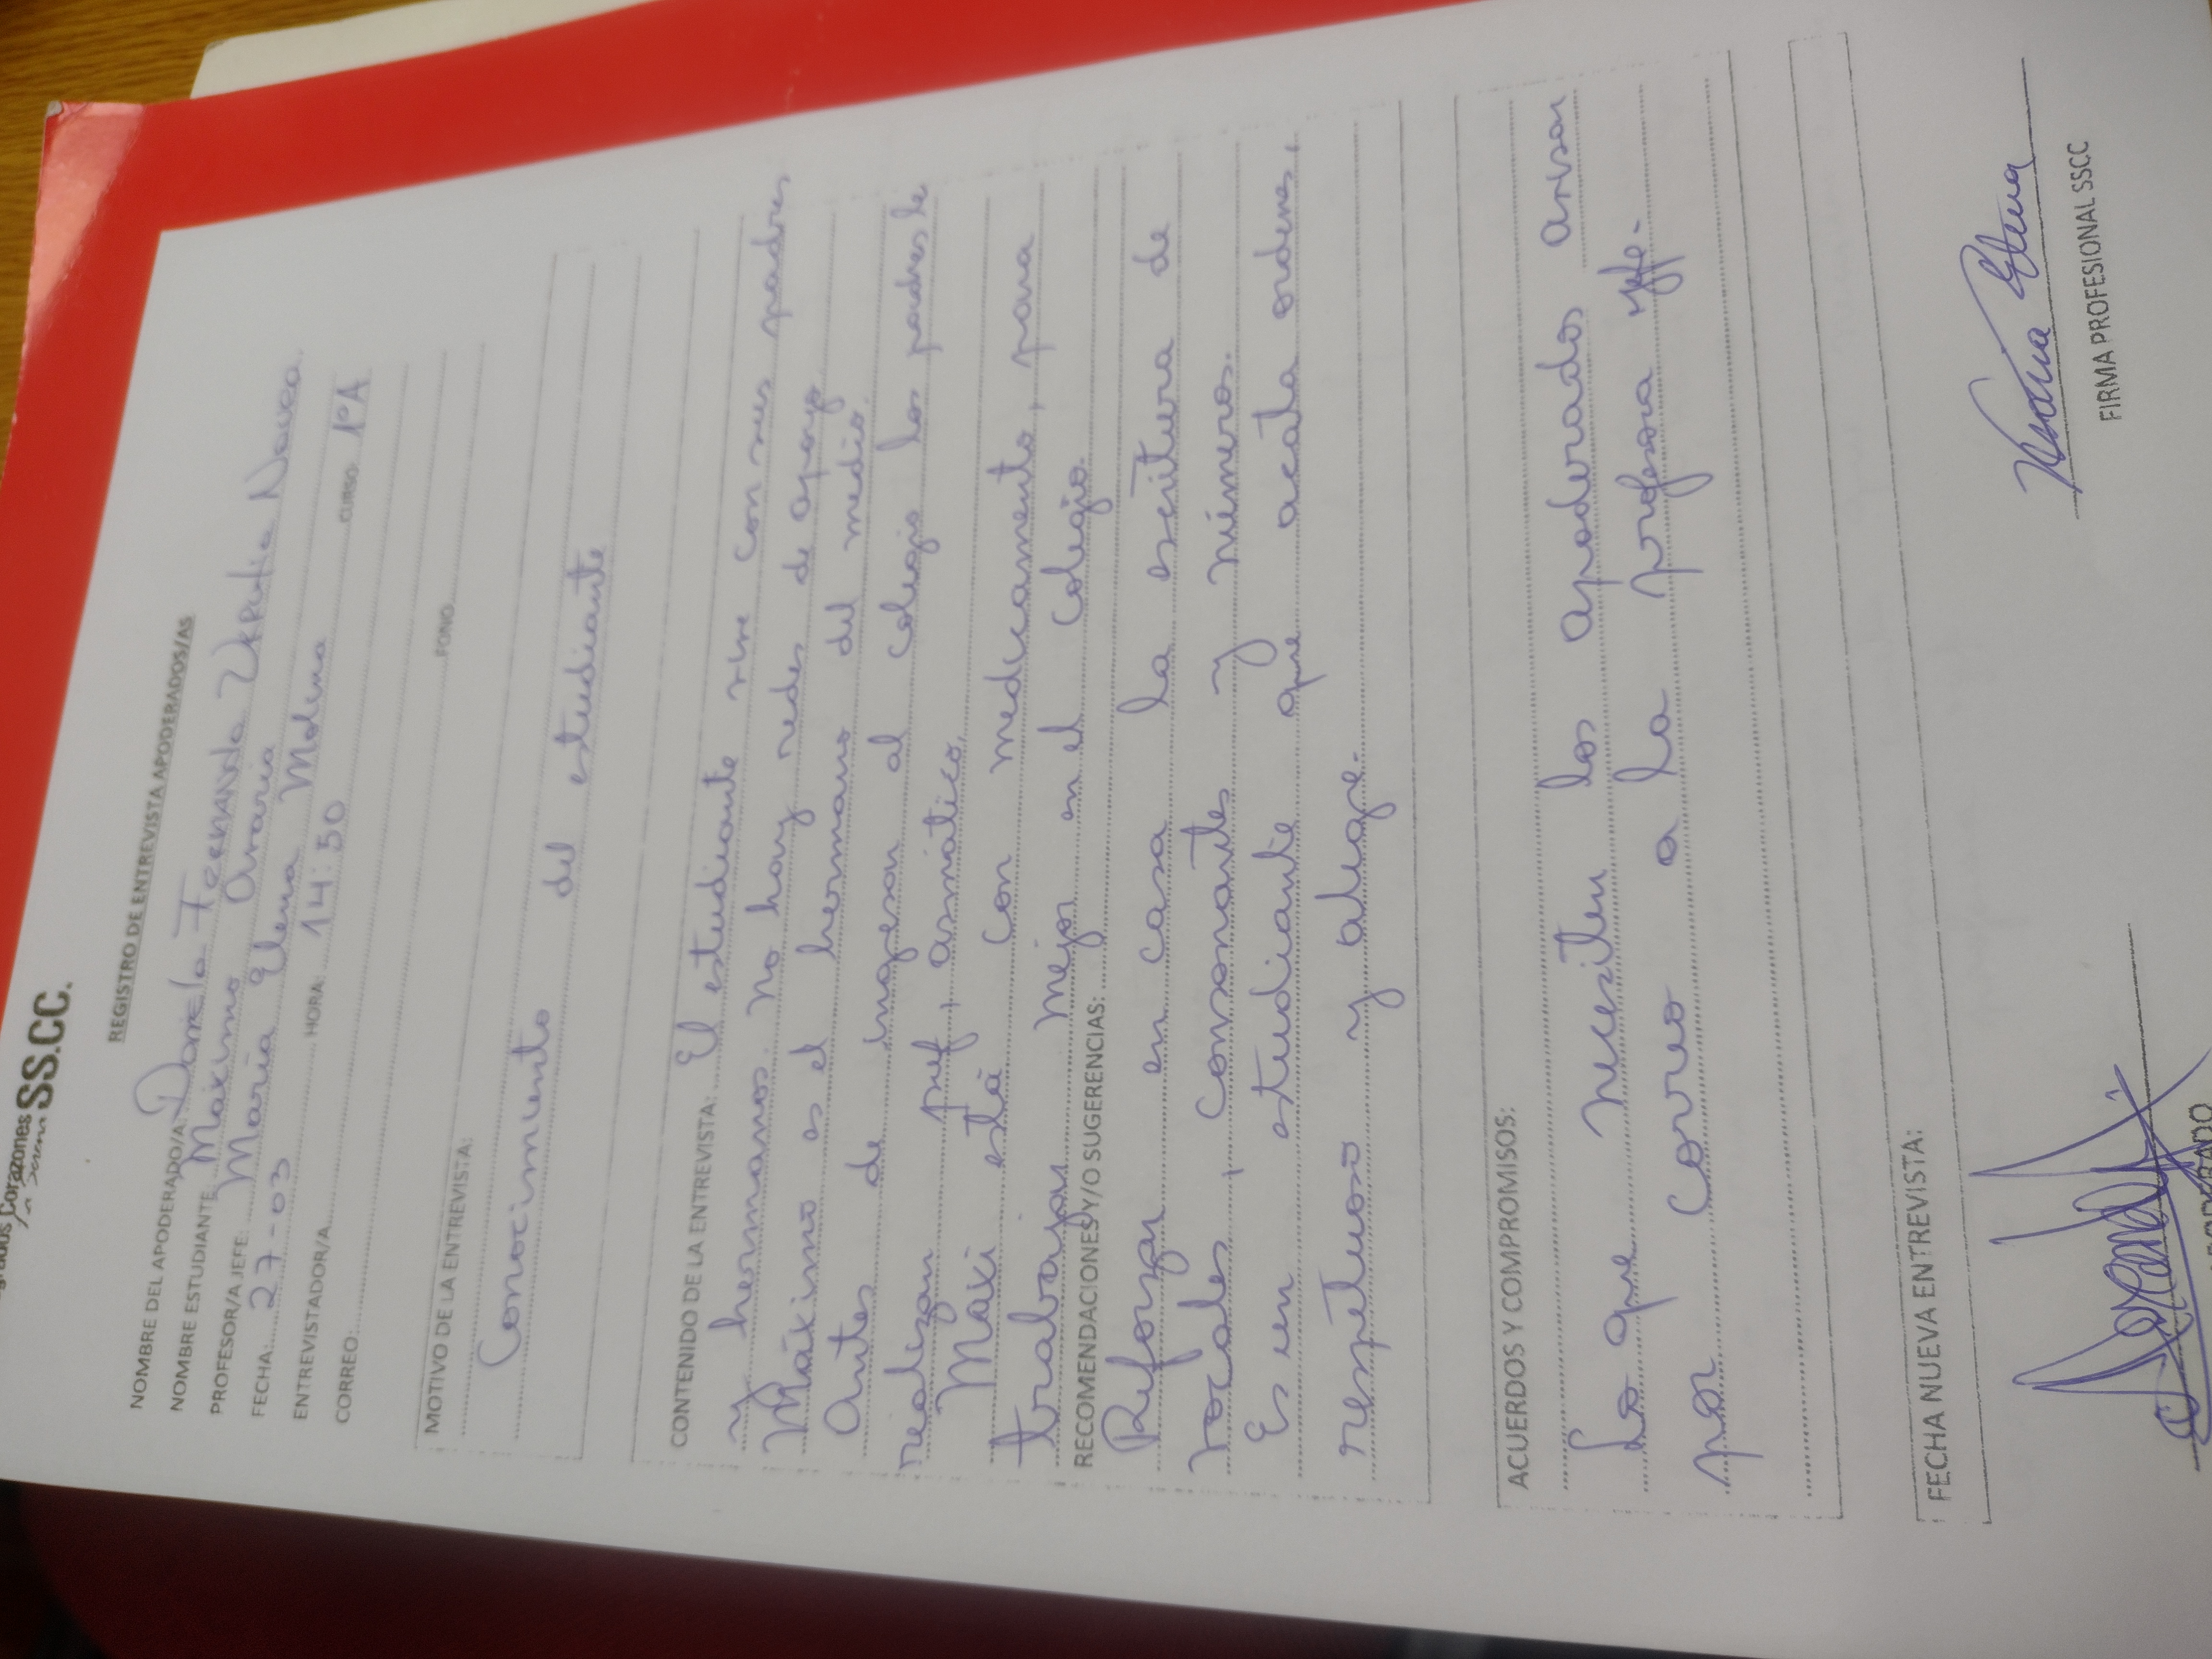 Corazones
SS.CC.
REGISTRO DE ENTREVISTA APODERADOS/AS
NOMBRE DEL APODERADO/A: Daniela Fernanda Urrutia Novoa.
NOMBRE ESTUDIANTE Maximo Amaria
PROFESOR/A JEFE: María Elena Molina
FECHA: 27-03 HORA: 14:50 CURSO 1ºA
ENTREVISTADOR/A
CORREO FONO
MOTIVO DE LA ENTREVISTA:
Conocimiento del estudiante
CONTENIDO DE LA ENTREVISTA: El estudiante vive con sus padres
y hermanos. No hay redes de apoyo
Máximo es el hermano del medio.
Antes de ingresar al colegio los padres le
realizan asmático.
Maxi está con medicamento, para
trabajar mejor en el colegio.
RECOMENDACIONES Y/O SUGERENCIAS:
Reforzar en casa la escritura de
vocales, consonantes y números.
Es un estudiante que acata ordenes,
respetuoso y alegre.
ACUERDOS Y COMPROMISOS:
Lo que necesiten los apoderados avisar
por correo a la profesora jefe.
FECHA NUEVA ENTREVISTA:
APODERADO
FIRMA PROFESIONAL SSCC